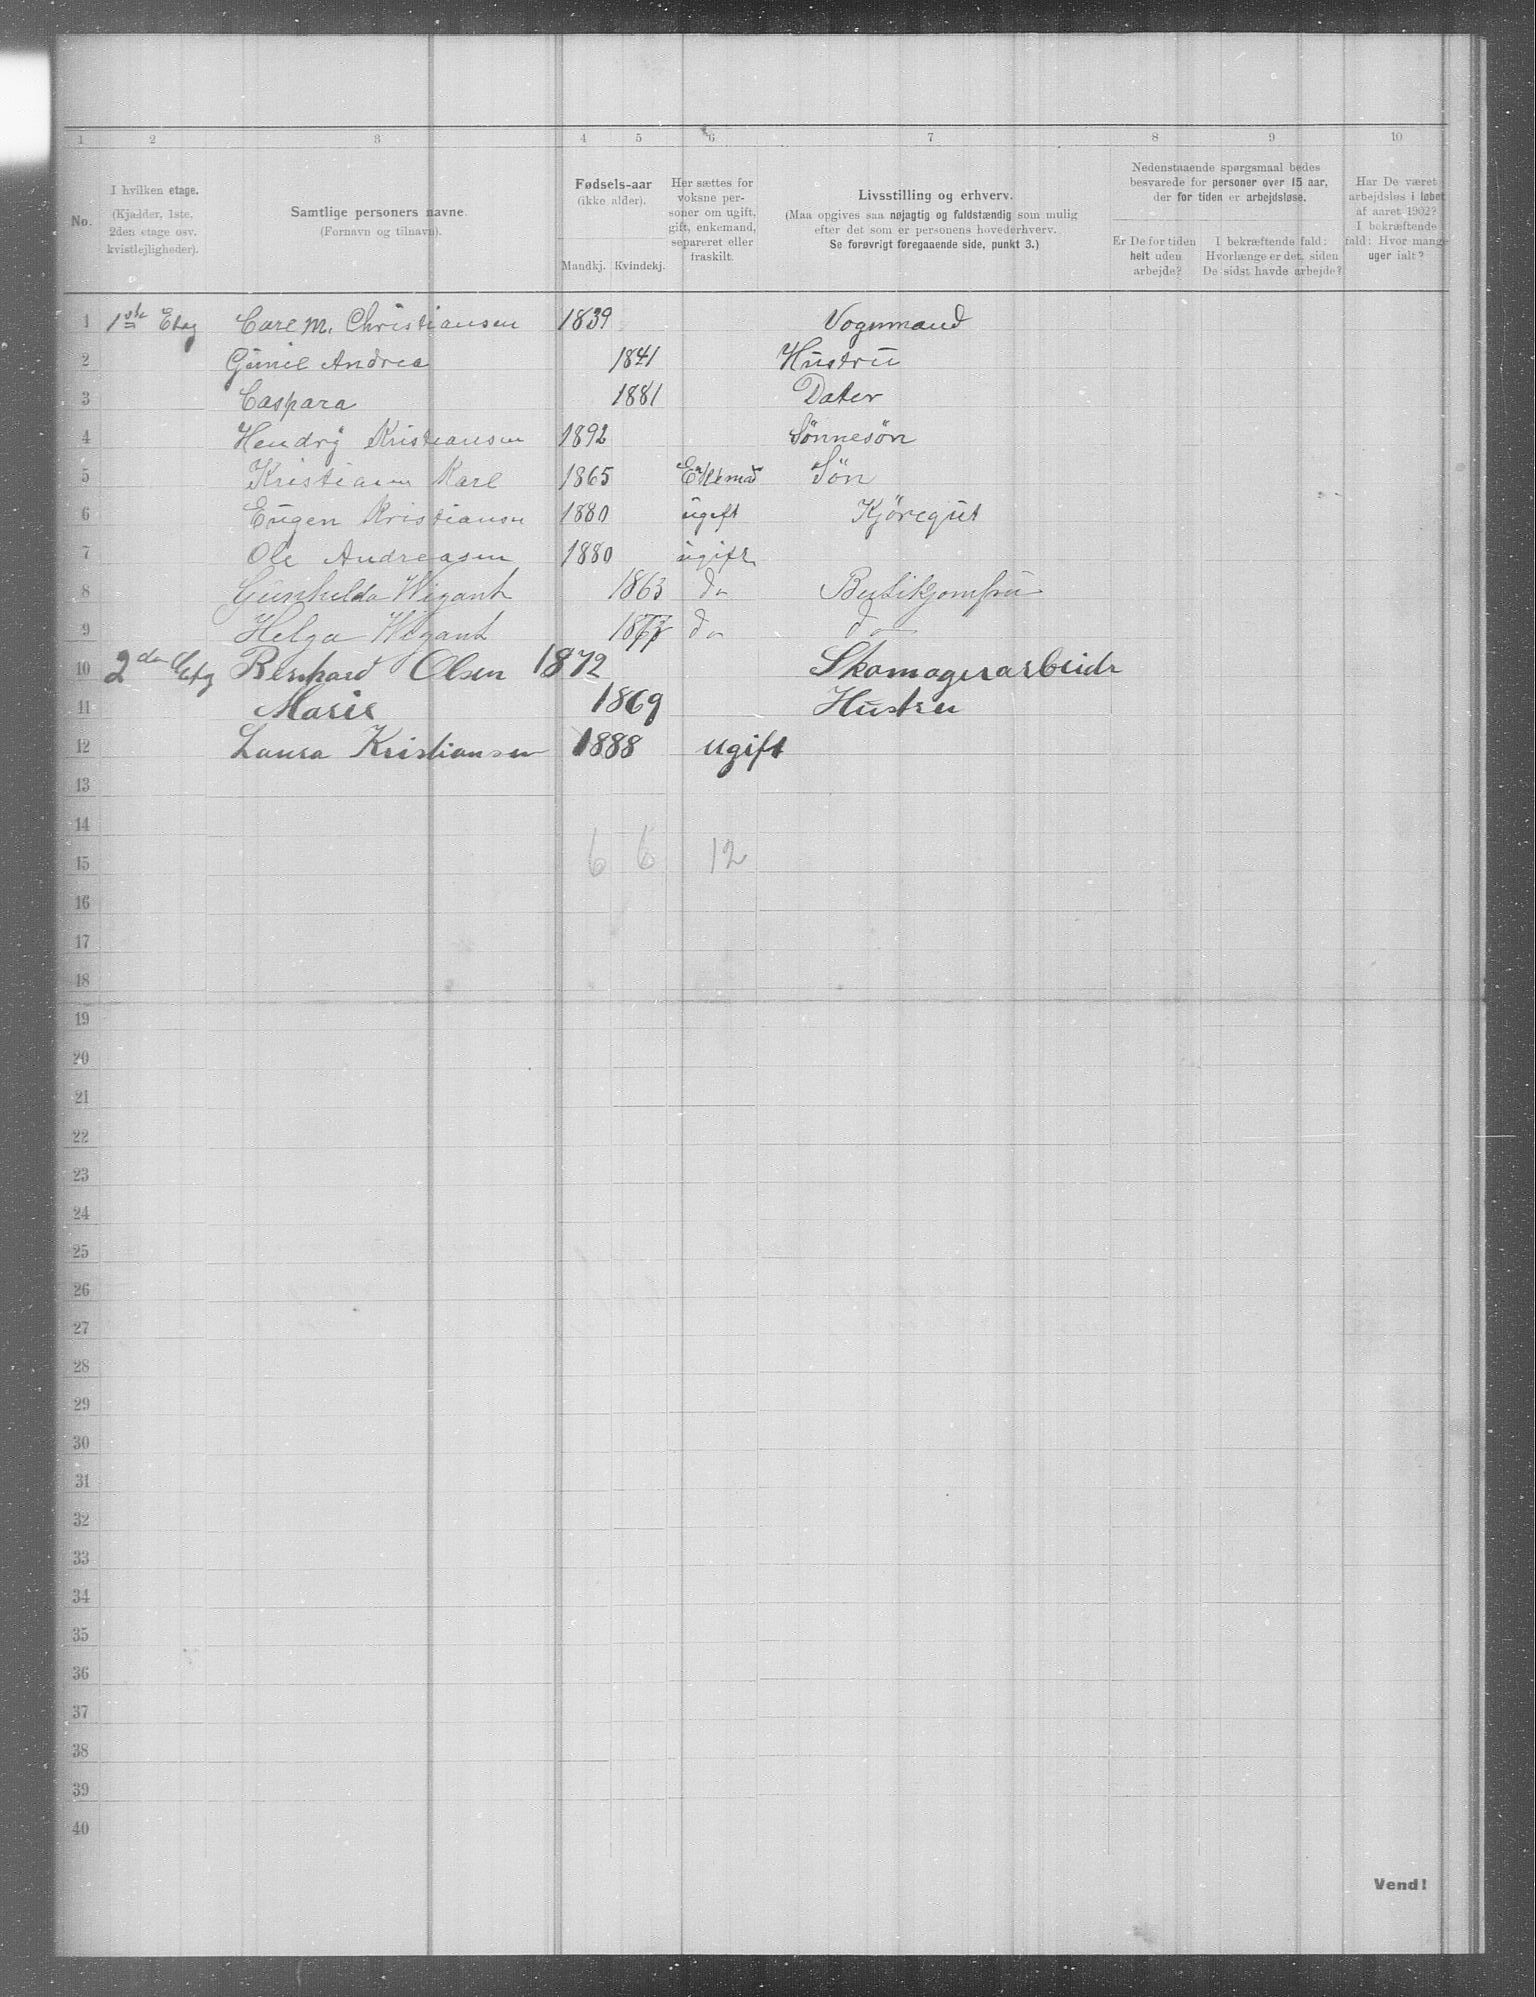 1 2 3 4 5 6 7 8 9 10
No.
I hvilken etage.
(Kjælder, 1ste,
2den etage osv.
kvistlejligheder).
Samtlige personers navne.
(Fornavn og tilnavn).
Fødsels-aar
(ikke alder).
Mandkj. Kvindekj.
Her sættes for
voksne per-
soner om ugift,
gift, enkemand,
separeret eller
fraskilt.
Livsstilling og erhverv.
(Maa opgives saa nøjagtig og fuldstændig som mulig
efter det som er personens hovederhverv.
Se forøvrigt foregaaende side, punkt 3.)
Nedenstaaende spørgsmaal bedes
besvarede for personer over 15 aar,
der for tiden er arbejdsløse.
Er De for tiden
helt uden
arbejde?
I bekræftende fald:
Hvorlænge er det, siden
De sidst havde arbejde?
Har De været
arbejdsløs i løbet
af aaret 1902?
I bekræftende
fald: Hvor mange
uger ialt?
1 1ste Etag Carl M. Christiansen 1839 Vognmand
2 Gunil Andrea 1841 Hustru
3 Caspara 1881 Dater
4 Hendrÿ Kristiansen 1892 Sönnesön
5 Kristiansen Karl 1865 Enkemad Sön
6 Eugen Kristiansn 1880 ugift Kjöregut
7 Ole Andreasen 1880 ugift
8 Gunhilda Wigant 1863 do Butikjomfru
9 Helga Wigant do do
10 2den Etg Bernhard Olsen 1872 Skomagerarbeidr
11 Marie 1869 Hustru
12 Laura Kristiansen 1888 ugift
13
14
15 6 6 12
16
17
18
19
20
21
22
23
24
25
26
27
28
29
30
31
32
33
34
35
36
37
38
39
40
Vend!